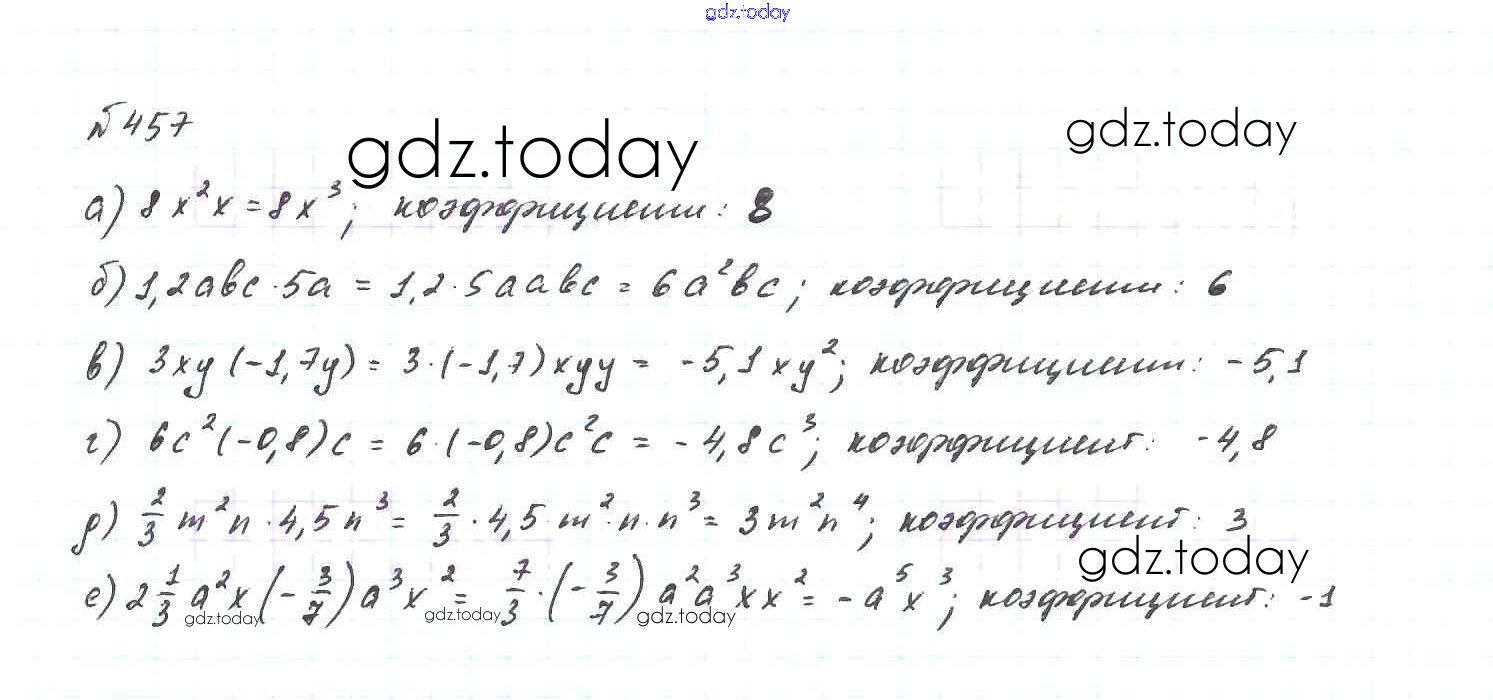 gdz.today
№457
gdz.today
gdz.today
а) 8x²x = 8x³; коэффициент: 8
б) 1,2abc · 5a = 1,2 · 5aabc = 6a²bc; коэффициент: 6
в) 3xy(-1,7y) = 3·(-1,7)xyy = -5,1xy²; коэффициент: -5,1
г) 6c²(-0,8)c = 6·(-0,8)c²c = -4,8c³; коэффициент: -4,8
д) 2/3 m²n · 4,5n³ = 2/3 · 4,5 · m² · n · n³ = 3m²n⁴; коэффициент: 3
gdz.today
е) 2 1/3 a²x(-3/7)a³x² = 7/3 · (-3/7)a²a³xx² = -a⁵x³; коэффициент: -1
gdz.today
gdz.today
gdz.today